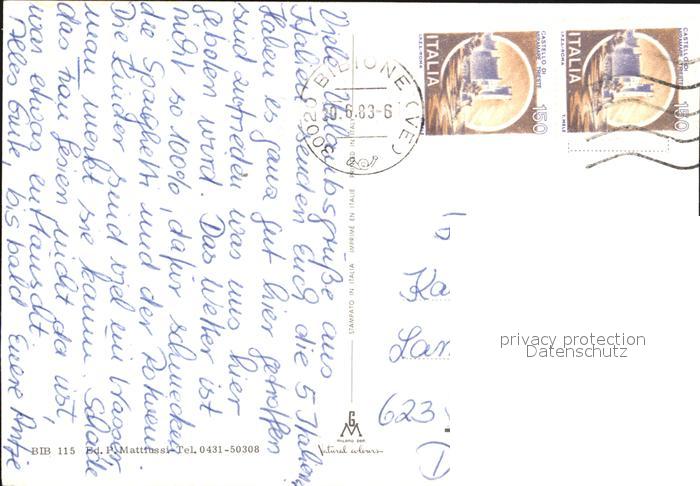 Viele Urlaubsgrüße aus
Italien senden Euch die 5 Italiener
Haben es ganz gut hier getroffen
sind zufrieden was uns hier
geboten wird. Das Wetter ist
nicht so 100%, dafür schmecken
die Spaghetti und der Rotwein.
Die Kinder sind viel im Wasser
man merkt sie kaum. Schade
das man Ferien nicht da ist,
war etwas enttäuscht
Alles Gute, bis bald Euere Antje
30020 BIBIONE (VE)
0.6.83-6
ITALIA
CASTELLO DI
MIRAMARE - TRIESTE
I.P.Z.S.-ROMA
150
ITALIA
CASTELLO DI
MIRAMARE - TRIESTE
I.P.Z.S.-ROMA
T. MELE
150
STAMPATO IN ITALIA IMPRIMÉ EN ITALIE PRINTED IN ITALY
Ka
Lan
623
D
privacy protection
Datenschutz
GM
milano dan
Natural colours
BIB 115 Ed. P. Mattiussi-Tel. 0431-50308